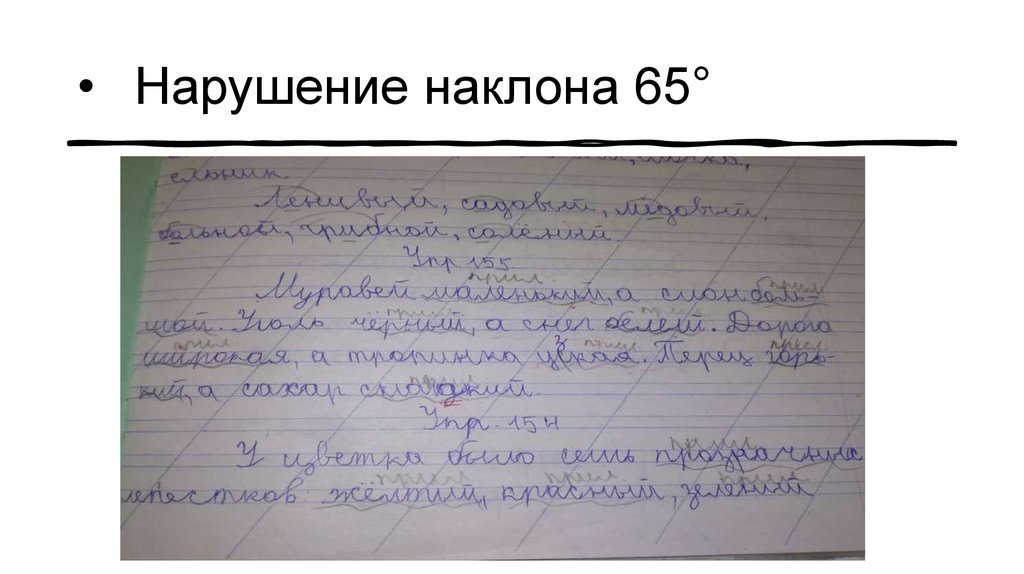 • Нарушение наклона 65°
ельник.
Ленивый, садовый, медовый,
больной, грибной, солёный.
Упр. 155
прил. прил
Муравей маленький, а слон боль-
прил прил
шой. Уголь чёрный, а снег белый. Дорога
прил прил. прил.
широкая, а тропинка узкая. Перец горь-
прил
кий, а сахар сладкий.
Упр. 154
прил.
У цветка было семь прозрачных
прил. прил. прил.
лепестков: жёлтый, красный, зелёный